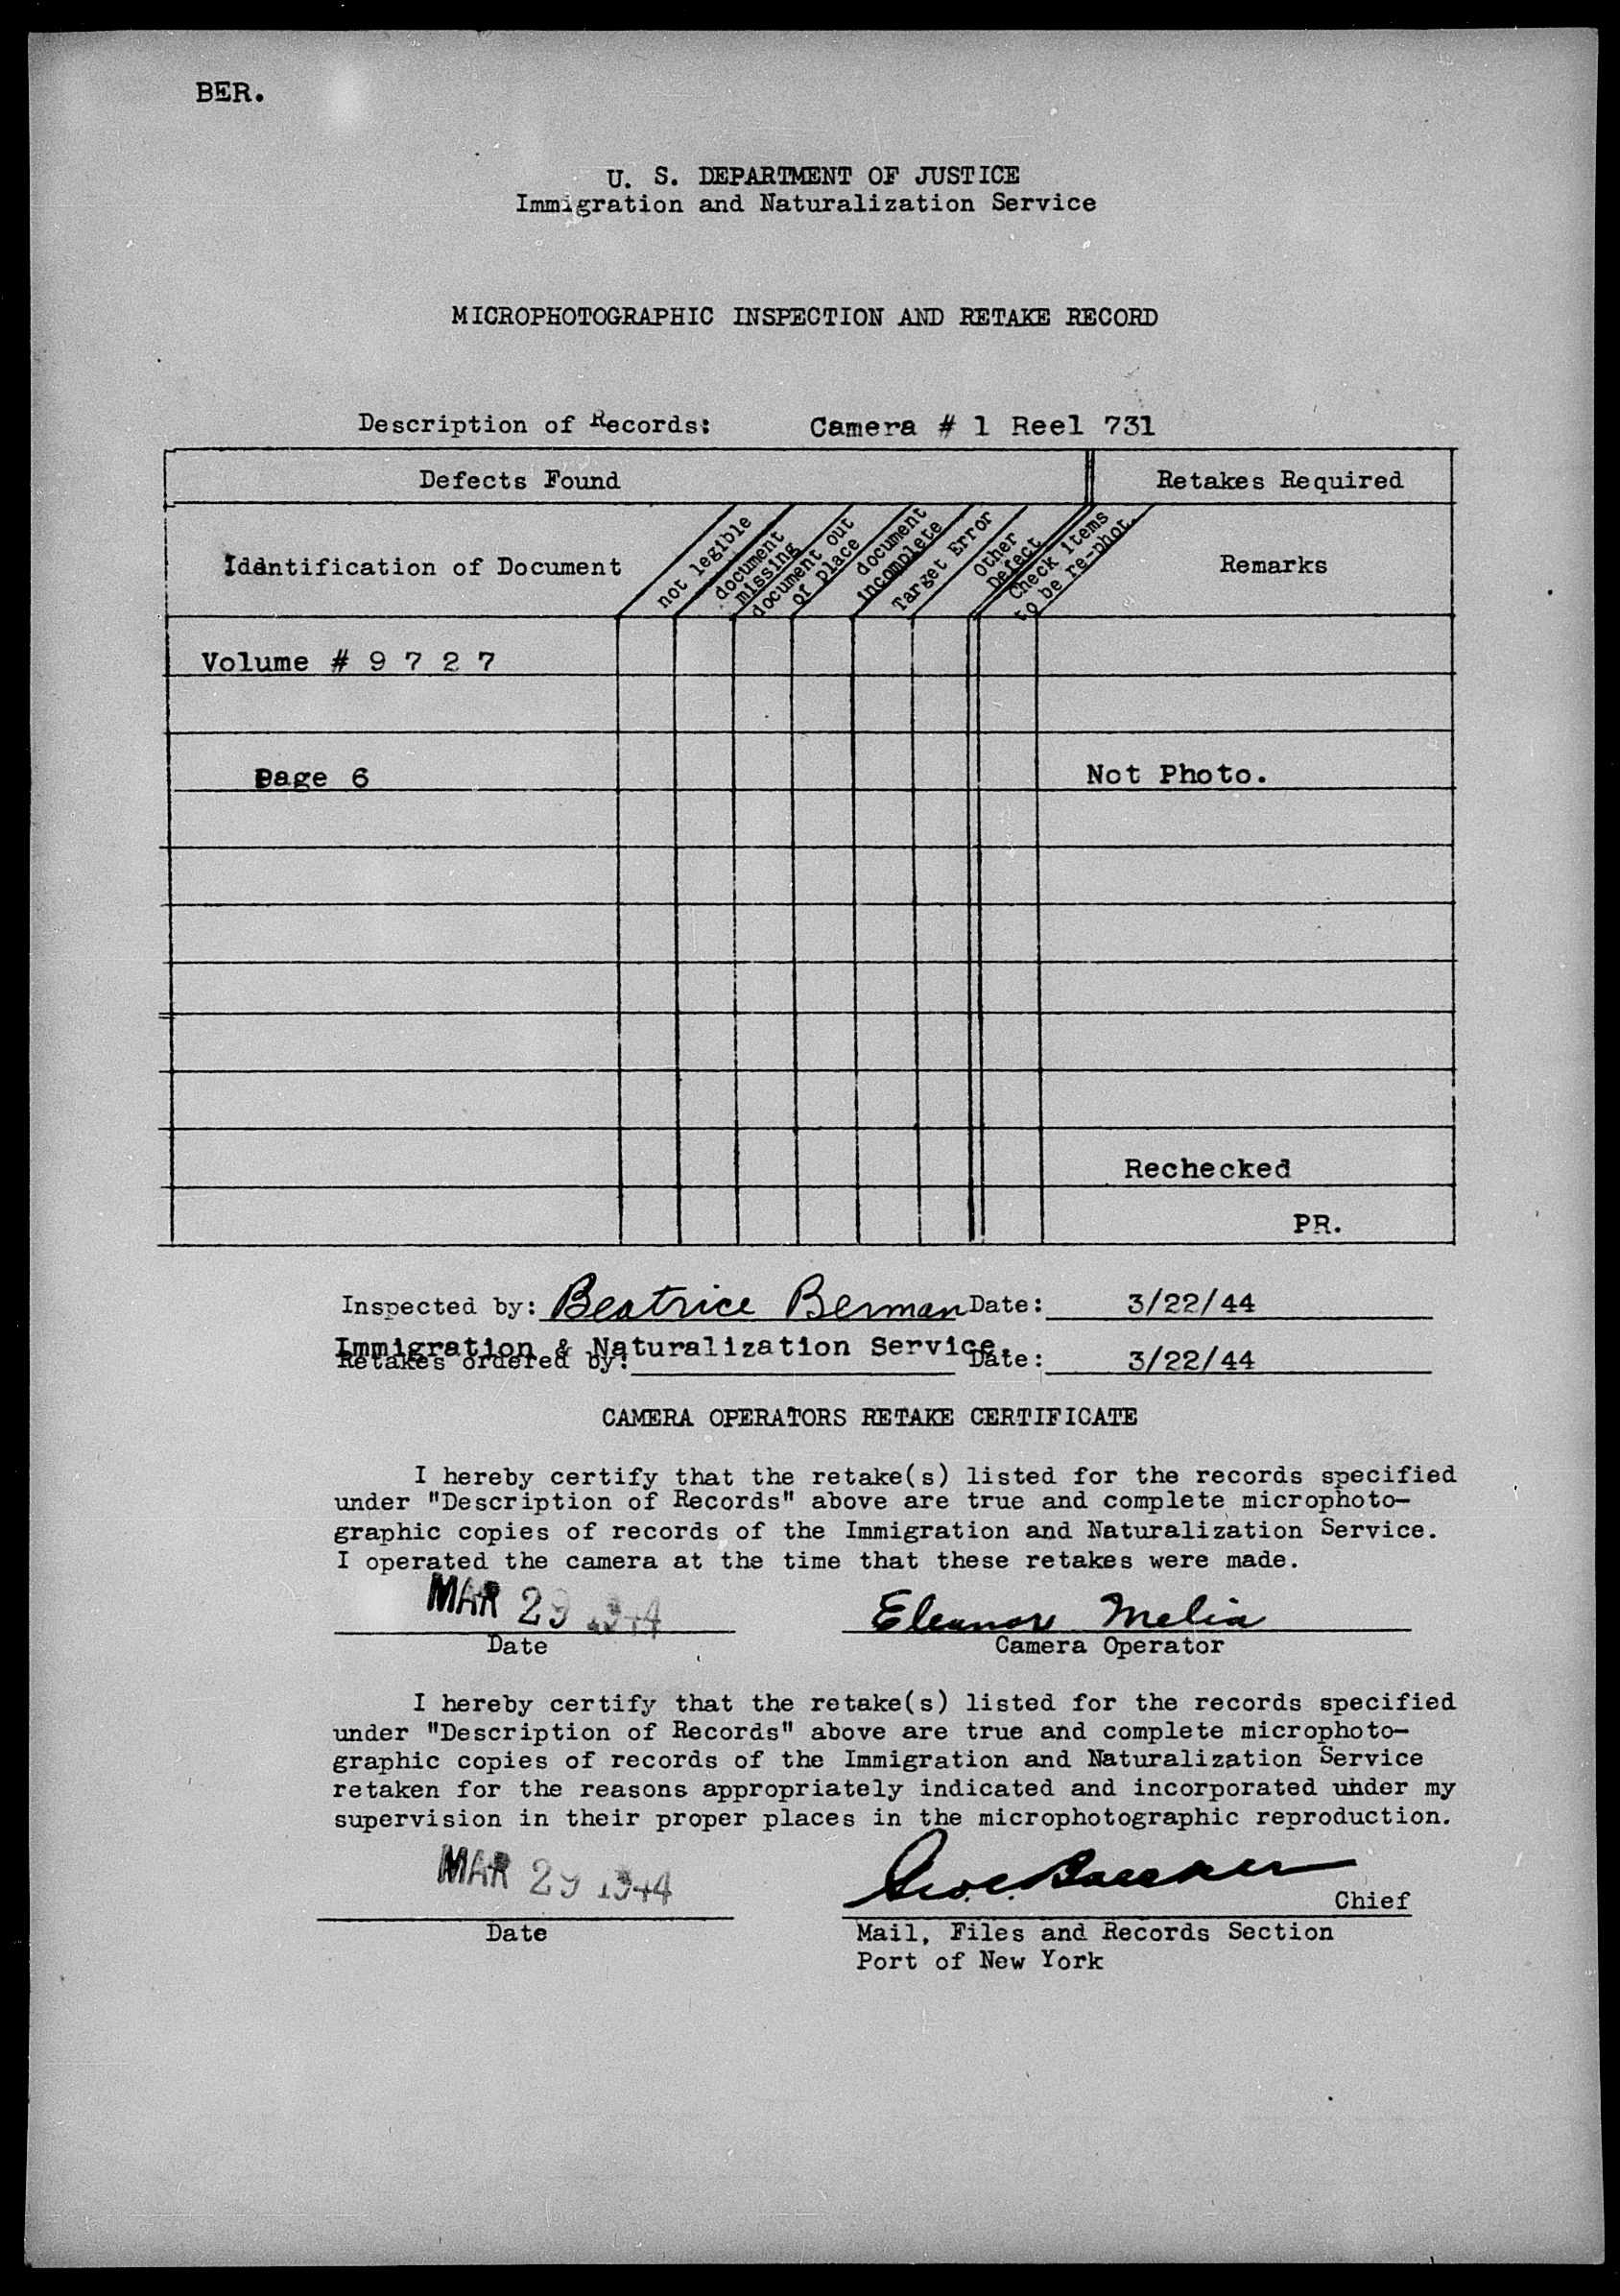 BER.
U. S. DEPARTMENT OF JUSTICE
Immigration and Naturalization Service
MICROPHOTOGRAPHIC INSPECTION AND RETAKE RECORD
Description of Records: Camera # 1 Reel 731
Defects Found Retakes Required
Identification of Document
not legible
document
missing
document out
of place
document
incomplete
Target Error
Other
Defect
Check items
to be re-phot.
Remarks
Volume # 9 7 2 7
Page 6 Not Photo.
Rechecked
PR.
Inspected by: Beatrice Berman Date: 3/22/44
Immigration & Naturalization Service.
Retakes ordered by: Date: 3/22/44
CAMERA OPERATORS RETAKE CERTIFICATE
I hereby certify that the retake(s) listed for the records specified
under "Description of Records" above are true and complete microphoto-
graphic copies of records of the Immigration and Naturalization Service.
I operated the camera at the time that these retakes were made.
MAR 29 1944 Eleanore Melia
Date Camera Operator
I hereby certify that the retake(s) listed for the records specified
under "Description of Records" above are true and complete microphoto-
graphic copies of records of the Immigration and Naturalization Service
retaken for the reasons appropriately indicated and incorporated under my
supervision in their proper places in the microphotographic reproduction.
MAR 29 1944
Chief
Date Mail, Files and Records Section
Port of New York